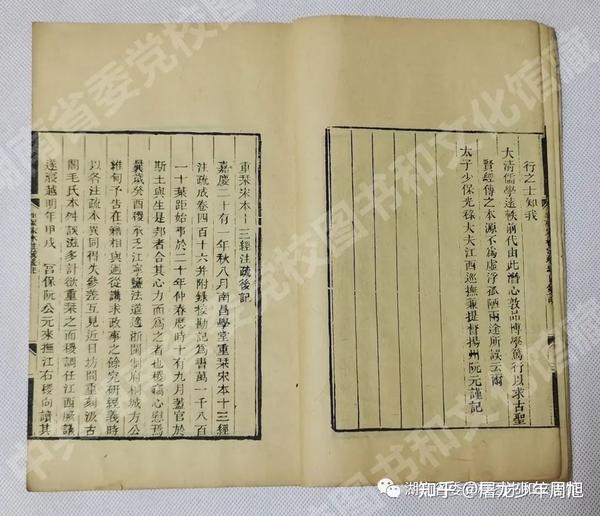 行之士知我
大清儒學遠軼前代由此潛心敦品博學篤行以求古聖
賢經傳之本源不為虛浮孤陋兩途所誤云爾
太子少保光祿大夫江西巡撫兼提督揚州阮元謹記
重栞宋本十三經注疏後記
嘉慶二十有一年秋八月南昌學堂重栞宋本十三經
注疏成卷四百十六并附錄挍勘記為書萬一千八百
一十葉距始事於二十年仲春歷時十有九月蓋官於
斯土與是邦者合其心力而為之者也稷竊心慰焉
曩歲癸酉稷承乏江寧鹽法道適浙閩制府桐城方公
維甸予告在籍相與過從講求政事之餘究研經義時
以各注疏本異同得失參差互見近日坊間重刻汲古
閣毛氏本舛誤滋多計欲重栞之而稷調任江西厥議
遂寢越明年甲戌 宮保阮公元來撫江右稷向讀其
知乎 @屠龙少年周旭